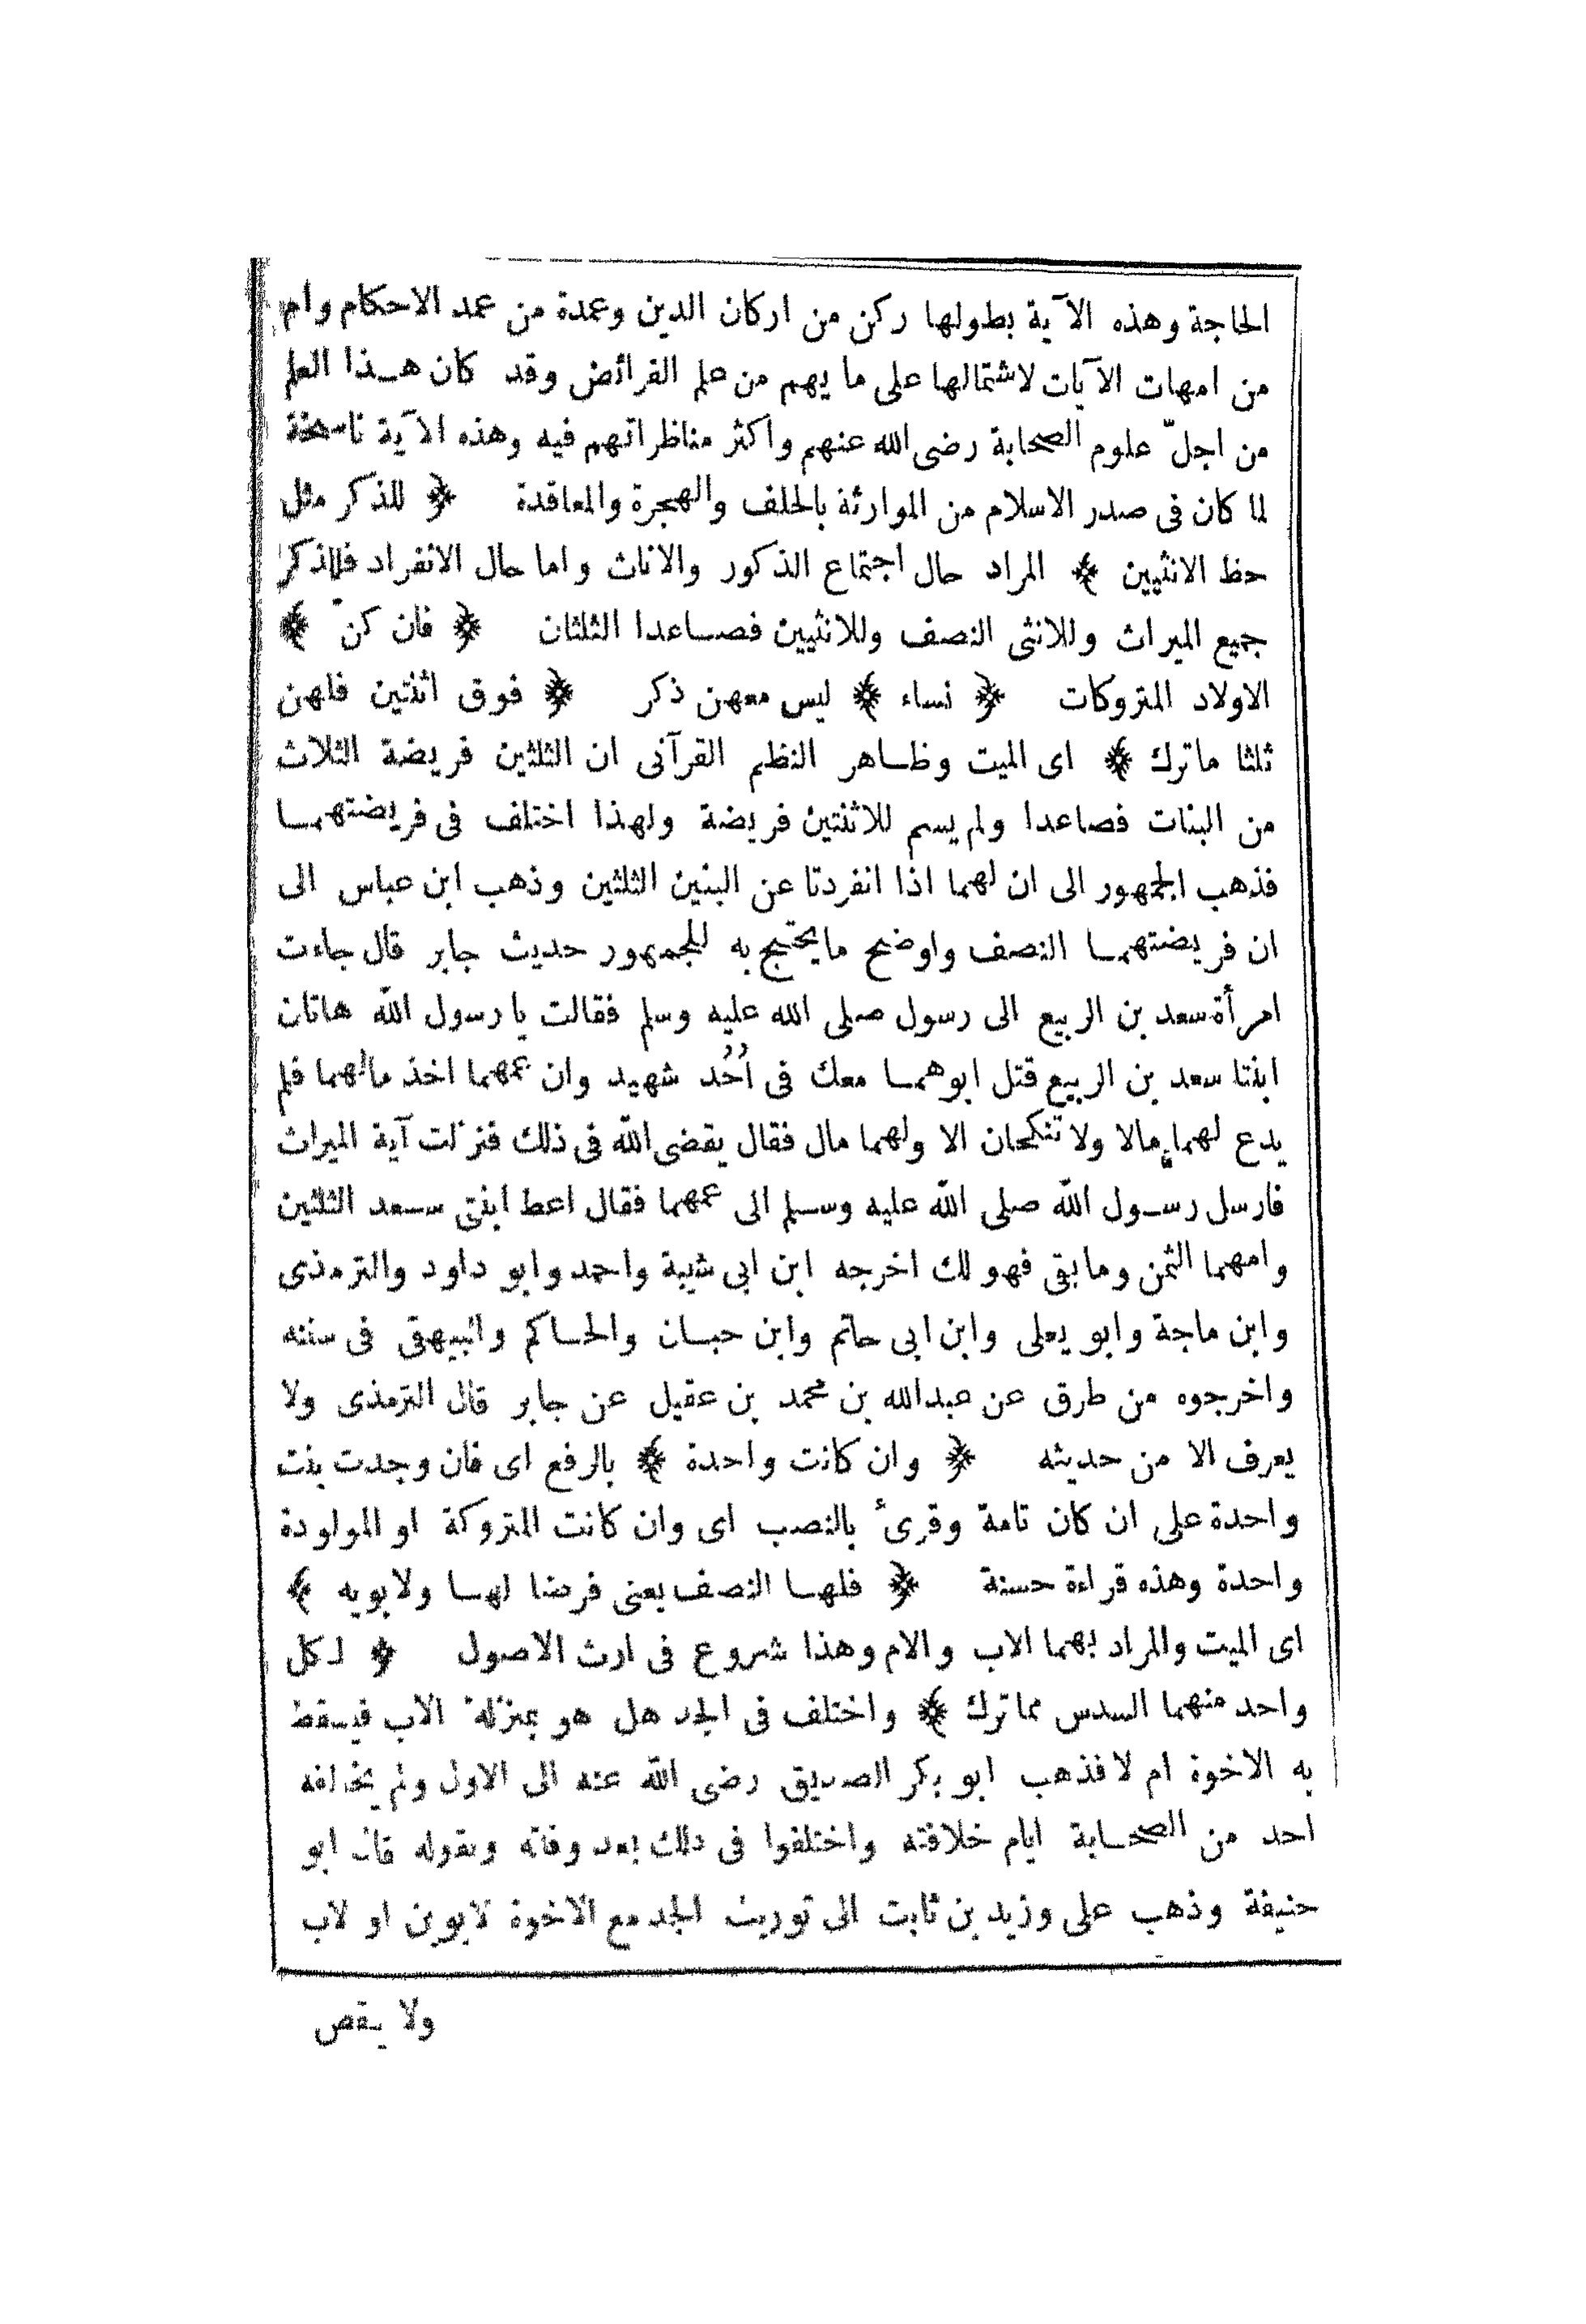 الحاجة وهذه الآية بطولها ركن من اركان الدين وعمدة من عمد الاحكام وام
من امهات الآيات لاشتمالها على ما يهم من علم الفرائض وقد كان هذا العلم
من اجلّ علوم الصحابة رضى الله عنهم واكثر مناظراتهم فيه وهذه الآية ناسخة
لما كان فى صدر الاسلام من الموارثة بالحلف والهجرة والمعاقدة ﴿ للذكر مثل
حظ الانثيين ﴾ المراد حال اجتماع الذكور والاناث واما حال الانفراد فللذكر
جميع الميراث وللانثى النصف وللانثيين فصاعدا الثلثان ﴿ فان كنّ ﴾
الاولاد المتروكات ﴿ نساء ﴾ ليس معهن ذكر ﴿ فوق اثنتين فلهن
ثلثا ماترك ﴾ اى الميت وظاهر النظم القرآنى ان الثلثين فريضة الثلاث
من البنات فصاعدا ولم يسم للاثنتين فريضة ولهذا اختلف فى فريضتهما
فذهب الجمهور الى ان لهما اذا انفردتا عن البنين الثلثين وذهب ابن عباس الى
ان فريضتهما النصف واوضح مايحتج به للجمهور حديث جابر قال جاءت
امرأة سعد بن الربيع الى رسول صلى الله عليه وسلم فقالت يا رسول الله هاتان
ابنتا سعد بن الربيع قتل ابوهما معك فى اُحُد شهيد وان عمهما اخذ مالهما فلم
يدع لهما مالا ولا تنكحان الا ولهما مال فقال يقضى الله فى ذلك فنزلت آية الميراث
فارسل رسول الله صلى الله عليه وسلم الى عمهما فقال اعط ابنتى سعد الثلثين
وامهما الثمن ومابقى فهو لك اخرجه ابن ابى شيبة واحمد وابو داود والترمذى
وابن ماجة وابو يعلى وابن ابى حاتم وابن حبان والحاكم والبيهقى فى سننه
واخرجوه من طرق عن عبدالله بن محمد بن عقيل عن جابر قال الترمذى ولا
يعرف الا من حديثه ﴿ وان كانت واحدة ﴾ بالرفع اى فان وجدت بنت
واحدة على ان كان تامة وقرىء بالنصب اى وان كانت المتروكة او المولودة
واحدة وهذه قراءة حسنة ﴿ فلها النصف يعنى فرضا لها ولابويه ﴾
اى الميت والمراد بهما الاب والام وهذا شروع فى ارث الاصول ﴿ لكل
واحد منهما السدس مماترك ﴾ واختلف فى الجد هل هو بمنزلة الاب فيسقط
به الاخوة ام لا فذهب ابو بكر الصديق رضى الله عنه الى الاول ولم يخالفه
احد من الصحابة ايام خلافته واختلفوا فى ذلك بعد وفاته وبقوله قال ابو
حنيفة وذهب على وزيد بن ثابت الى توريث الجد مع الاخوة لابوين او لاب
ولا ينقص